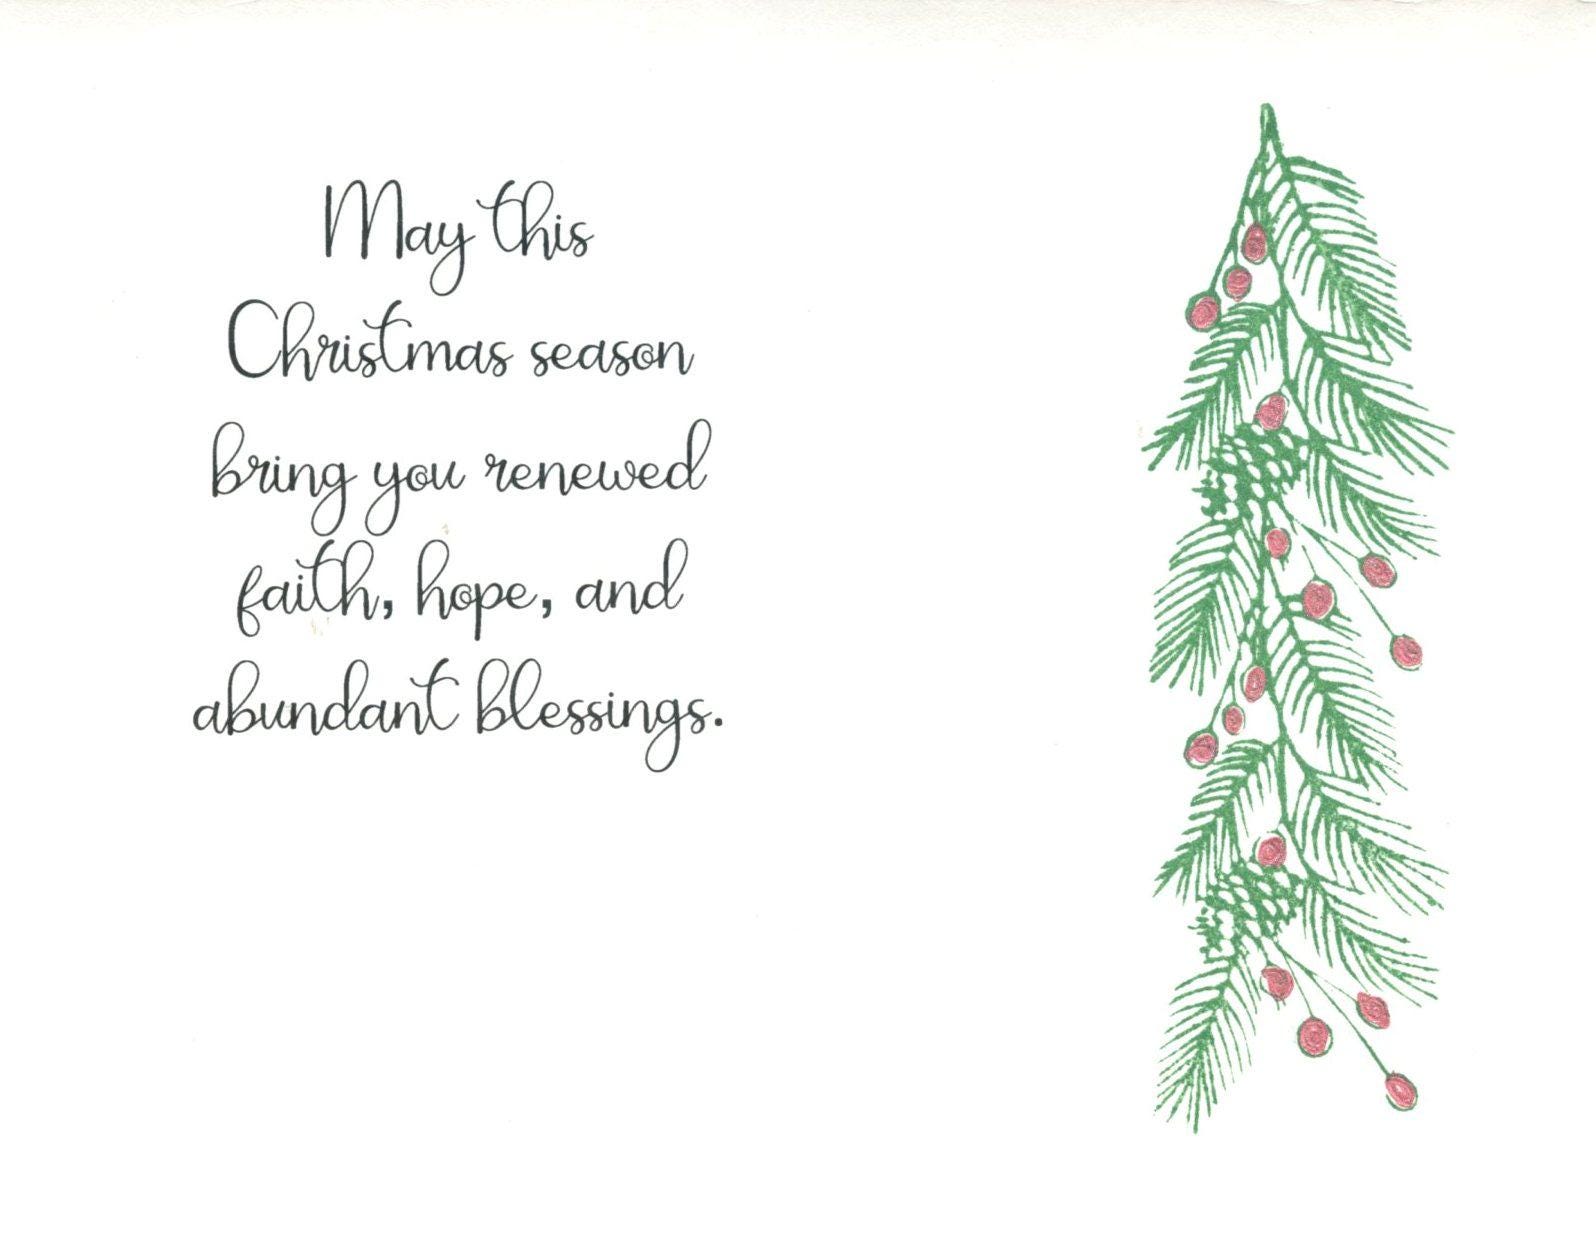 May this
Christmas season
bring you renewed
faith, hope, and
abundant blessings.